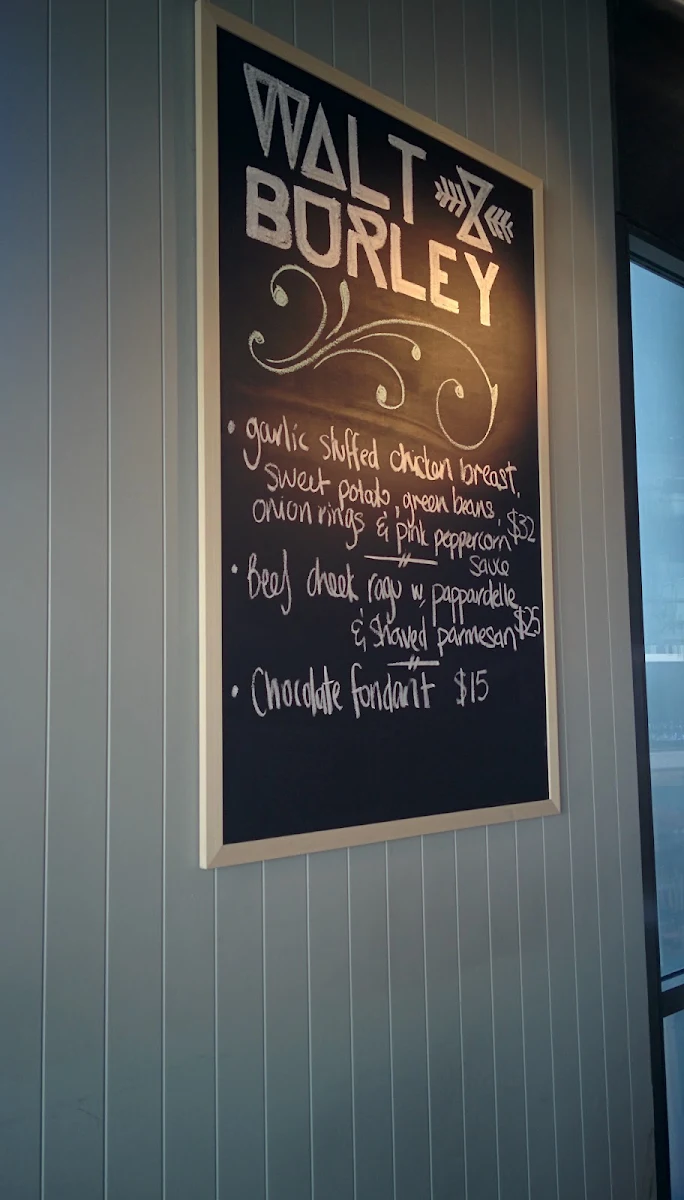 WALT
BURLEY
• garlic stuffed chicken breast,
sweet potato, green beans,
onion rings & pink peppercorn $32
sauce
• Beef cheek ragu w, pappardelle
& shaved parmesan $25
• Chocolate fondant $15